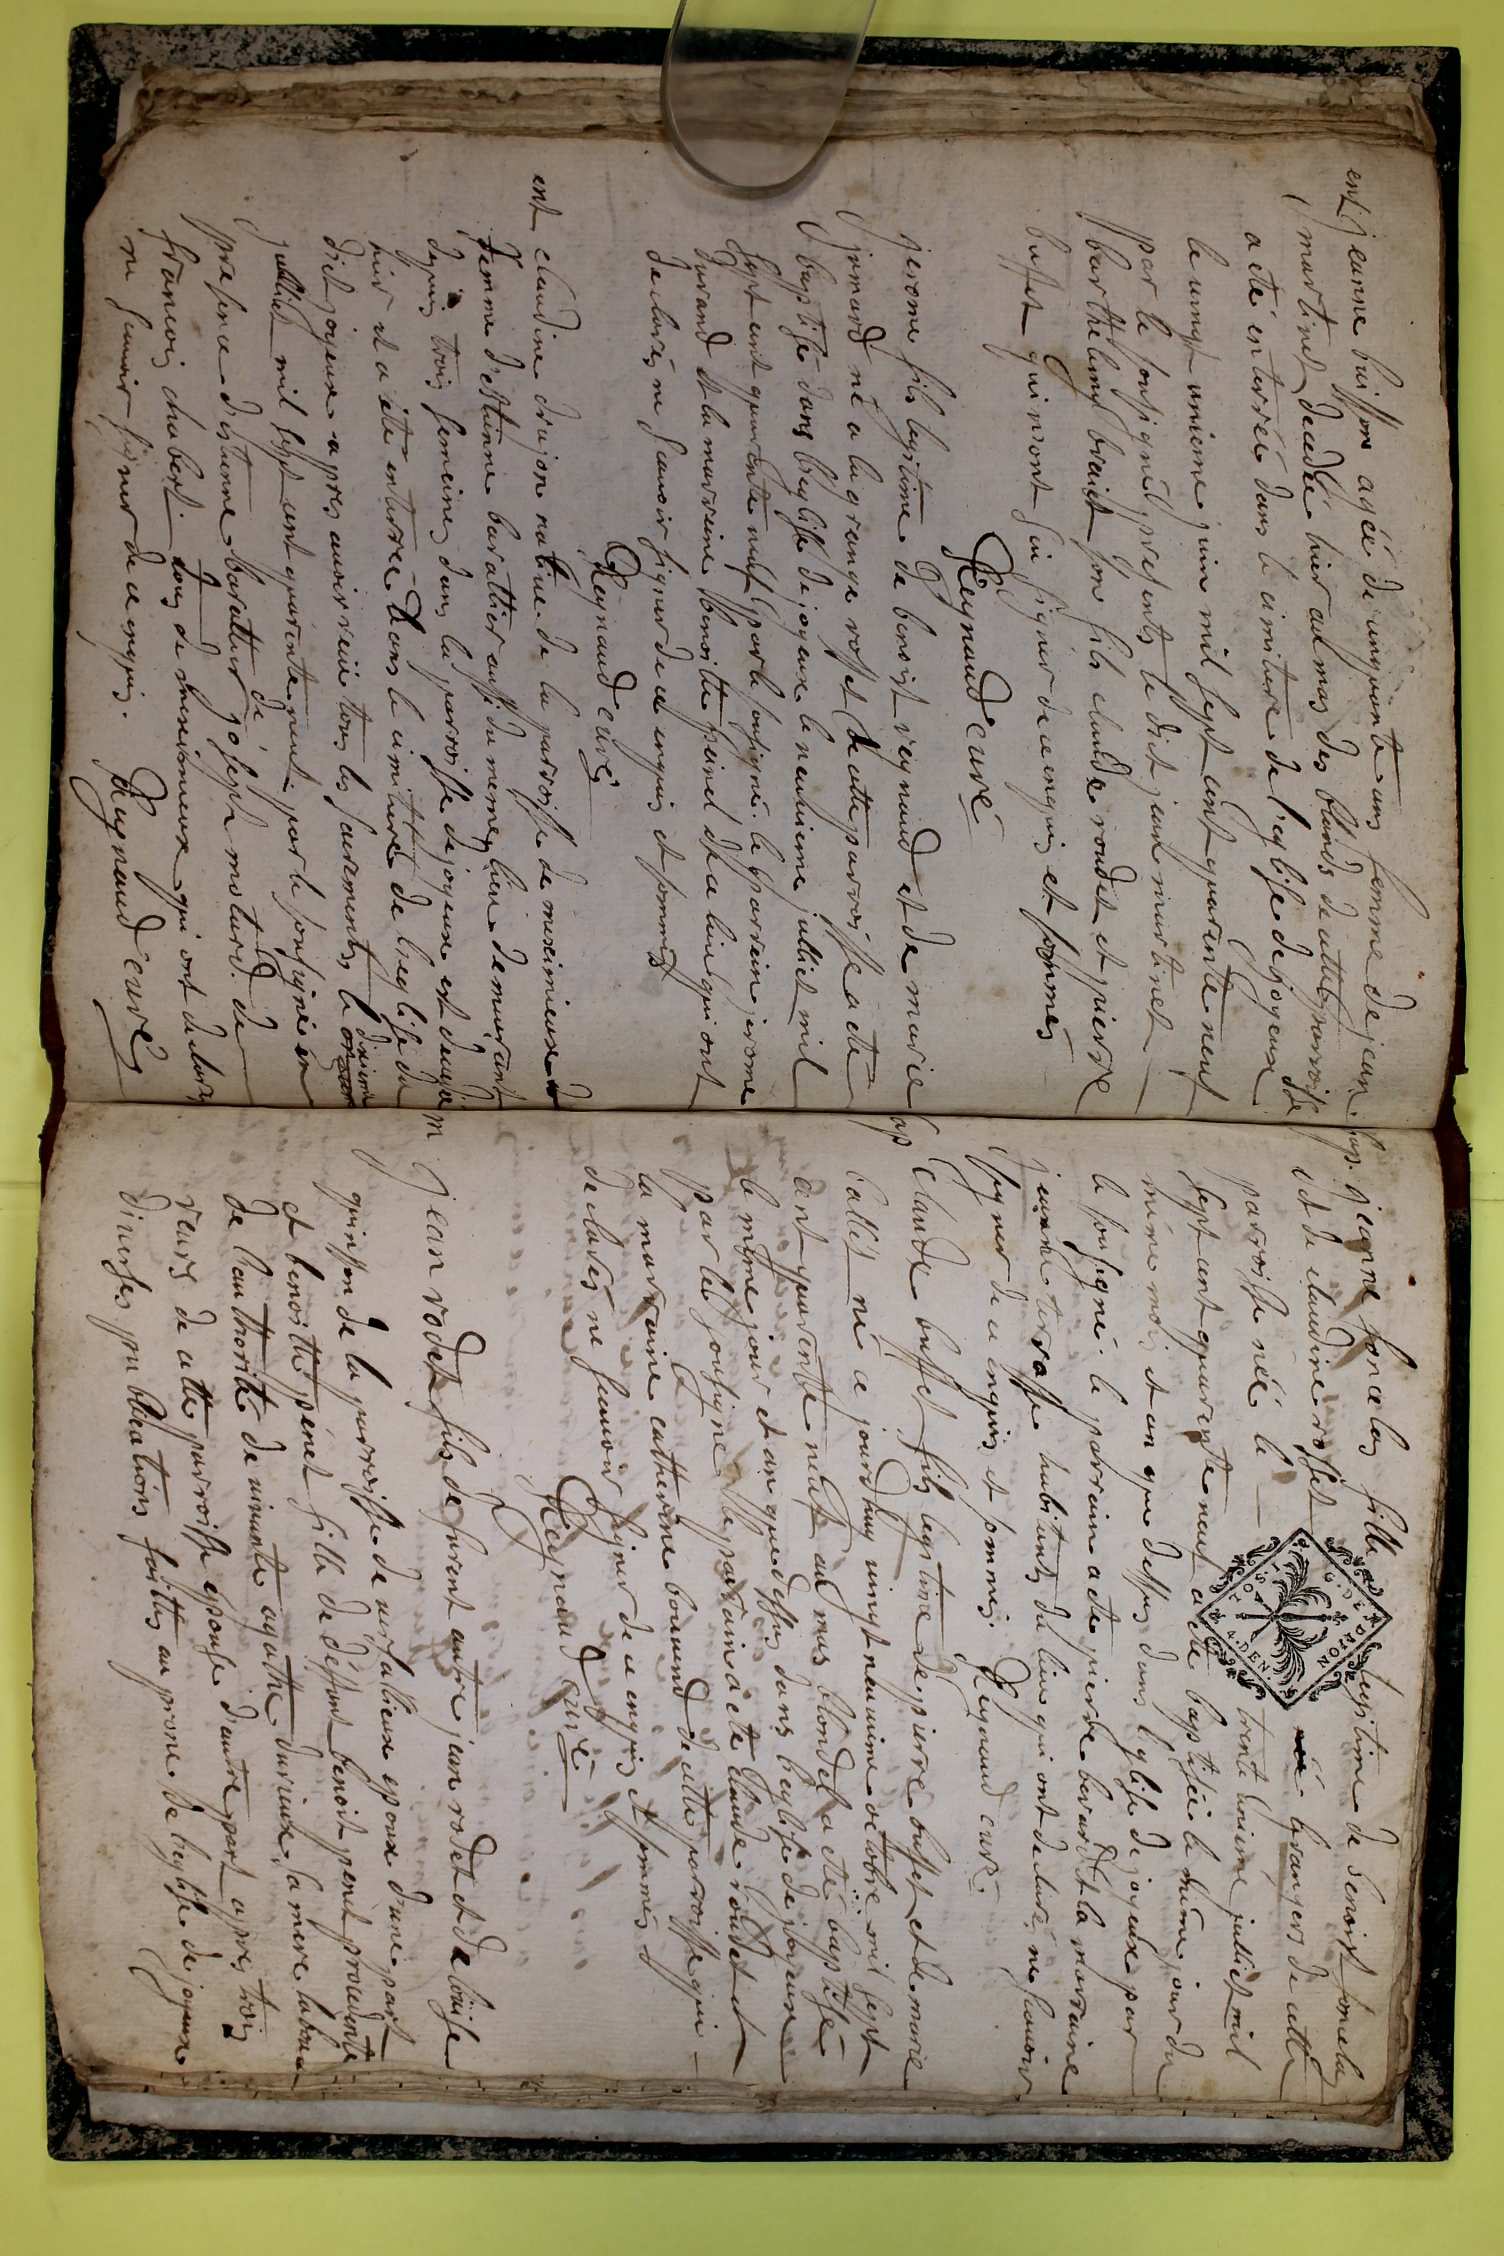 ent jeanne buisson agée de cinquante ans femme de jean
martinet decedée hier au mas des blonds de cette parroisse
a eté enterrée dans le cimitiere de l'eglise de joyeux
le vingt unieme juin mil sept cent quarente neuf
par le sousigné presents le dict jean martinet
barthelemy brevet son fils claude roudet et pierre
buffet qui n'ont sçu signer de ce enquis et sommés
Reynaud curé
jerome fils legitime de benoist reynaud et de marie
jumard né a la grange rosset de cette parroisse a eté
baptisé dans l'eglise de joyeux le neuvieme julliet mil
sept cent quarente neuf par le sousigné. le parrein jerome
durand et la marreine benoitte peinet de ce lieu qui ont
declarés ne scavoir signer de ce enquis et sommés
Reynaud curé
ent claudine drujon native de la parroisse de meximieux
femme d'estienne barattier aussi du meme lieu demeurant
depuis trois semeines dans la parroisse de joyeux est decedée
hier et a été enterrée dans le cimitiere de l'eglise du
dict joyeux apres avoir receu tous les sacrements le dixieme
julliet mil sept cent quarente neuf par le sousigné en
presence d'estienne barattier de joseph moturd de
francois chabert tous de meximieux qui ont declarés
ne scavoir signer de ce enquis. Reynaud curé
bap. jeanne poncelas fille legitime de benoist poncelas
et de claudine rosset granger de cette
parroisse née le trente unieme julliet mil
sept cent quarente neuf a eté baptisée le meme jour du
meme mois et an que dessus dans l'eglise de joyeux par
le sousigné. le parrain a eté pierre berard et la marraine
jeanne terrasse habitants du lieu qui ont declaré ne scavoir
signer de ce enquis et sommés. Reynaud curé.
bap claude buffet fils legitime de pierre buffet et de marie
callet né ce jourd'huy vingt neuvieme octobre mil sept
cent quarente neuf au mas blondel a eté baptisé
le meme jour et an que dessus dans l'eglise de joyeux
par le sousigné le parrain a eté claude roudet et
la marraine catherine bovend de cette parroisse qui
declarés ne scavoir signer de ce enquis et sommés
Reynaud curé
m jean rodet fils de furent autre jean rodet et de loüise
quinson de la parroisse de versallieux epoux d'une part
et benoitte penet fille de deffunt benoit penet procedente
de l'authorité de vivante agathe durieux sa mere labou
reurs de cette parroisse epouse d'autre part apres trois
diverses publications faittes au prone de l'eglise de joyeux
G. DE DIJON
4. DEN.